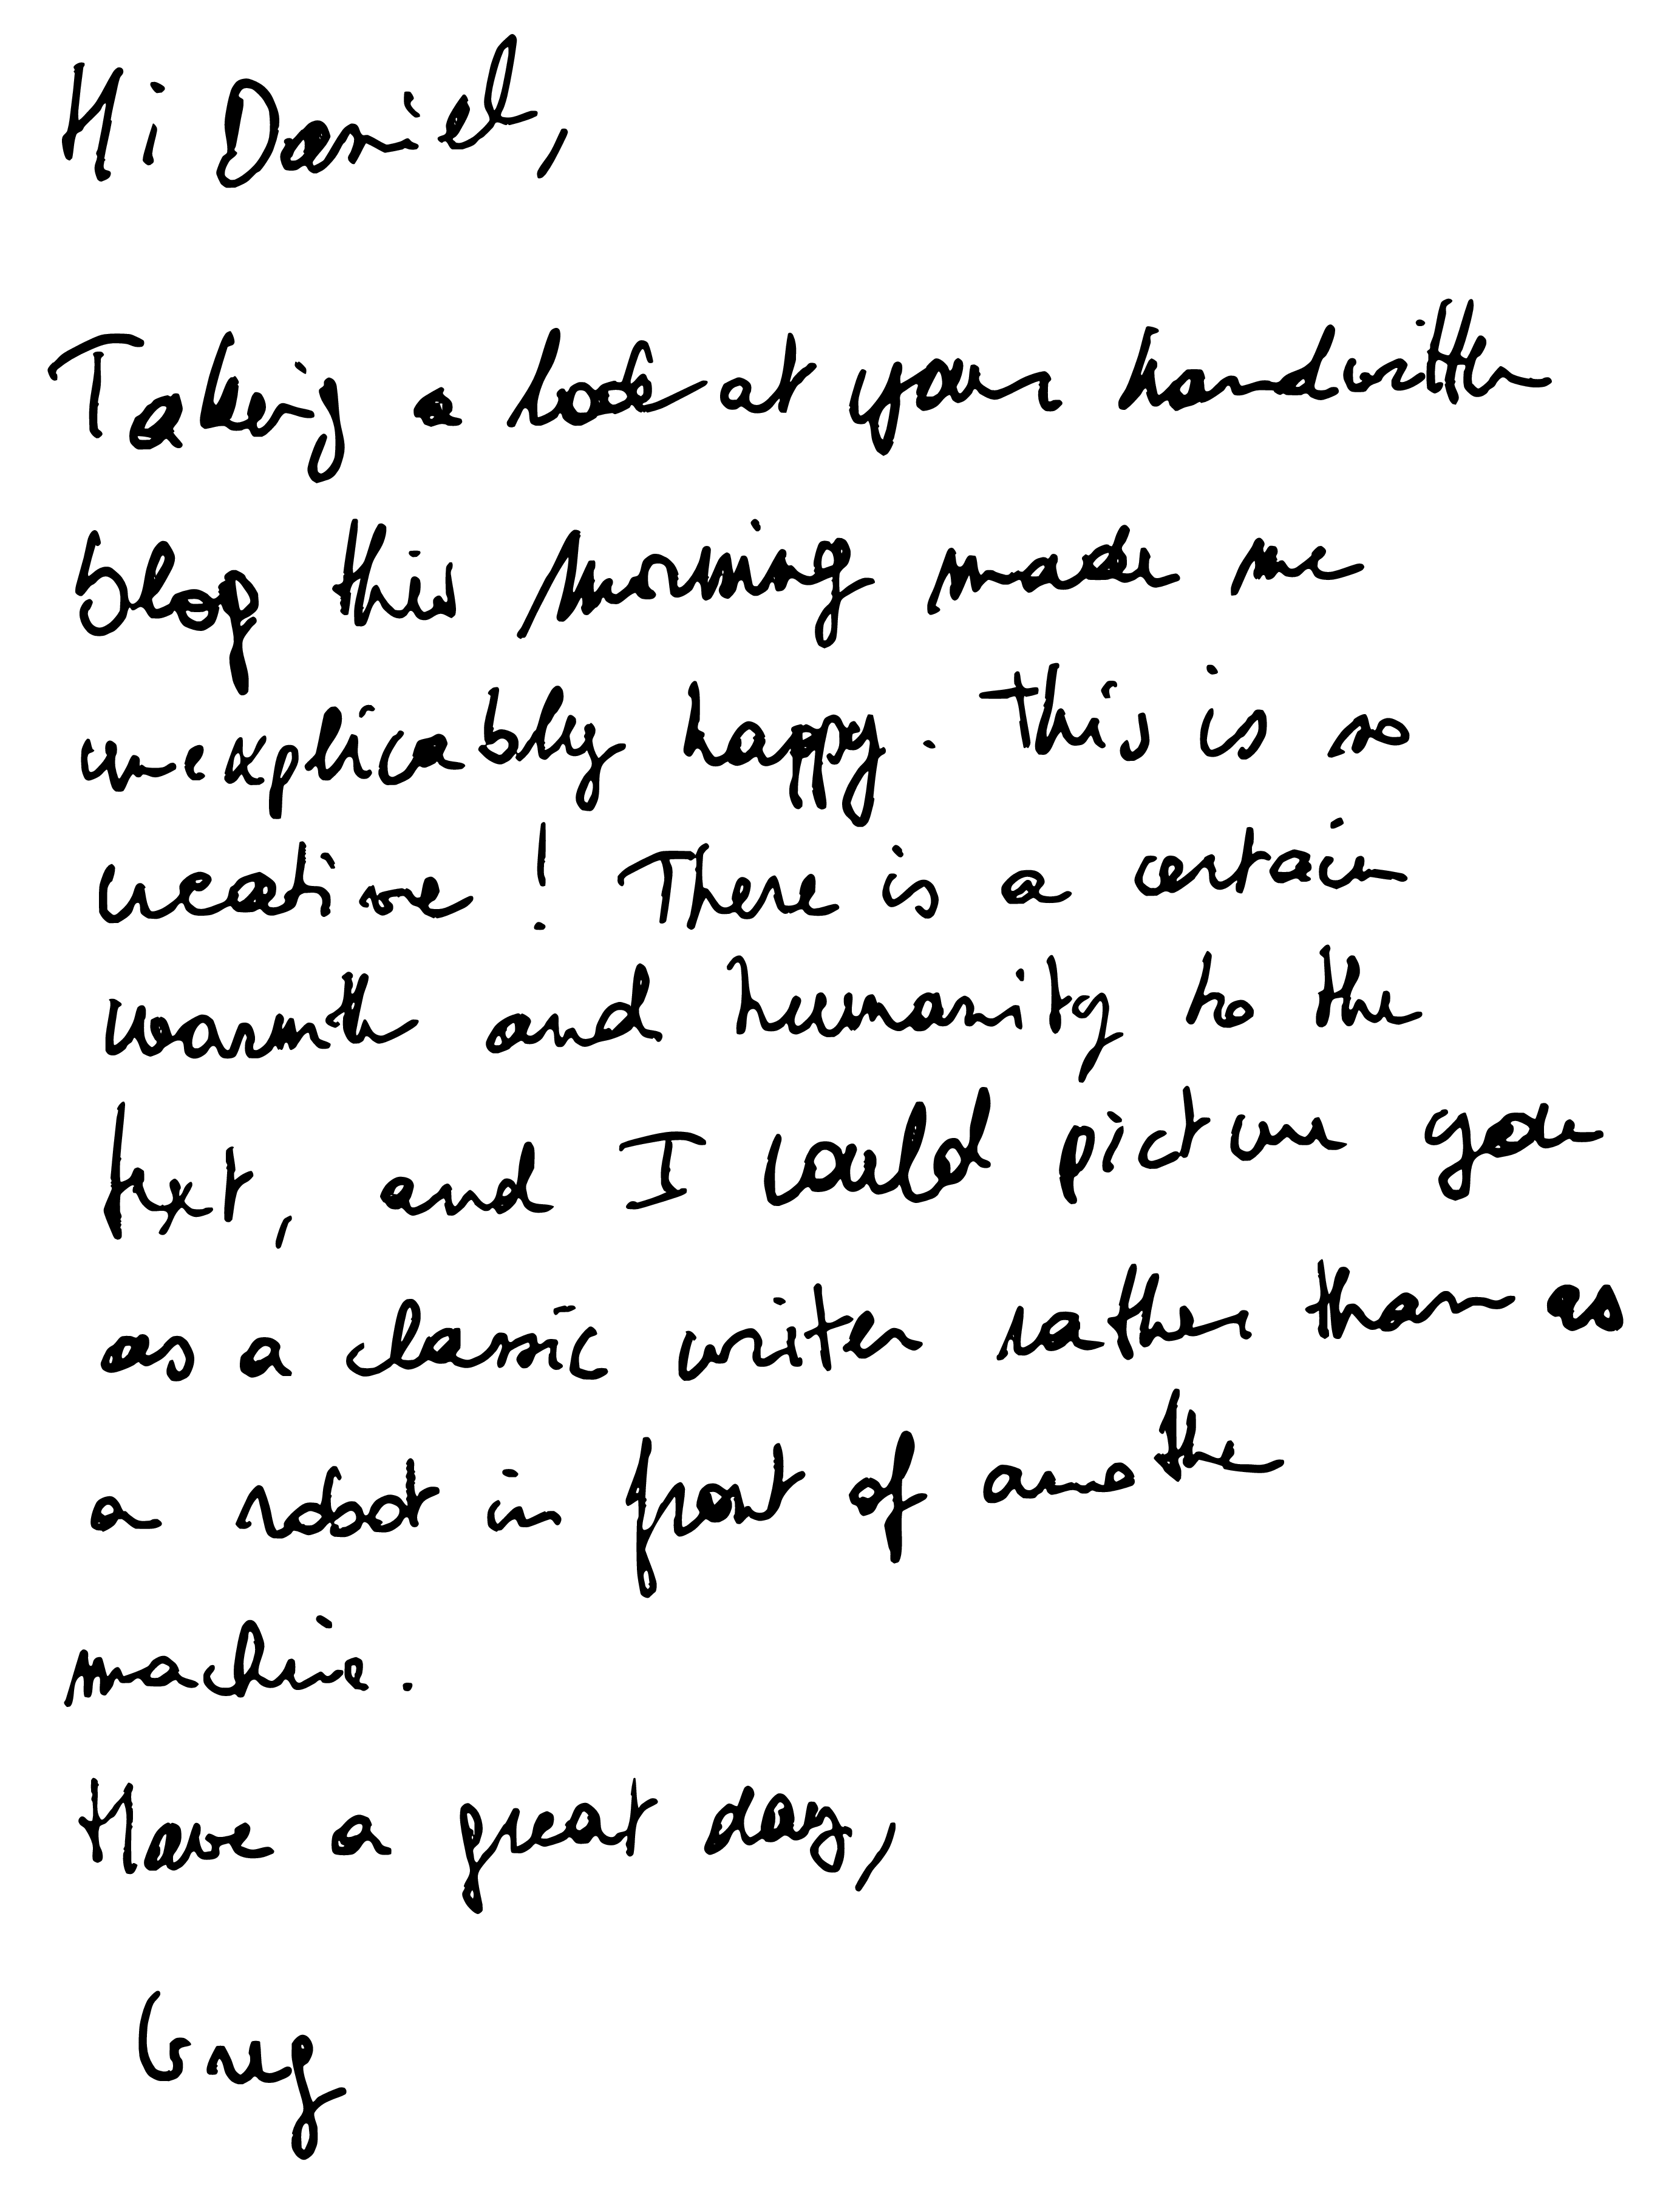 Hi Daniel,
Taking a look at your handwritten
blog this morning made me
unexplicably happy. This is so
creative! There is a certain
warmth and humanity to the
text, and I could picture you
as a classic writer rather than as
a robot in front of another
machine.
Have a great day,
Greg